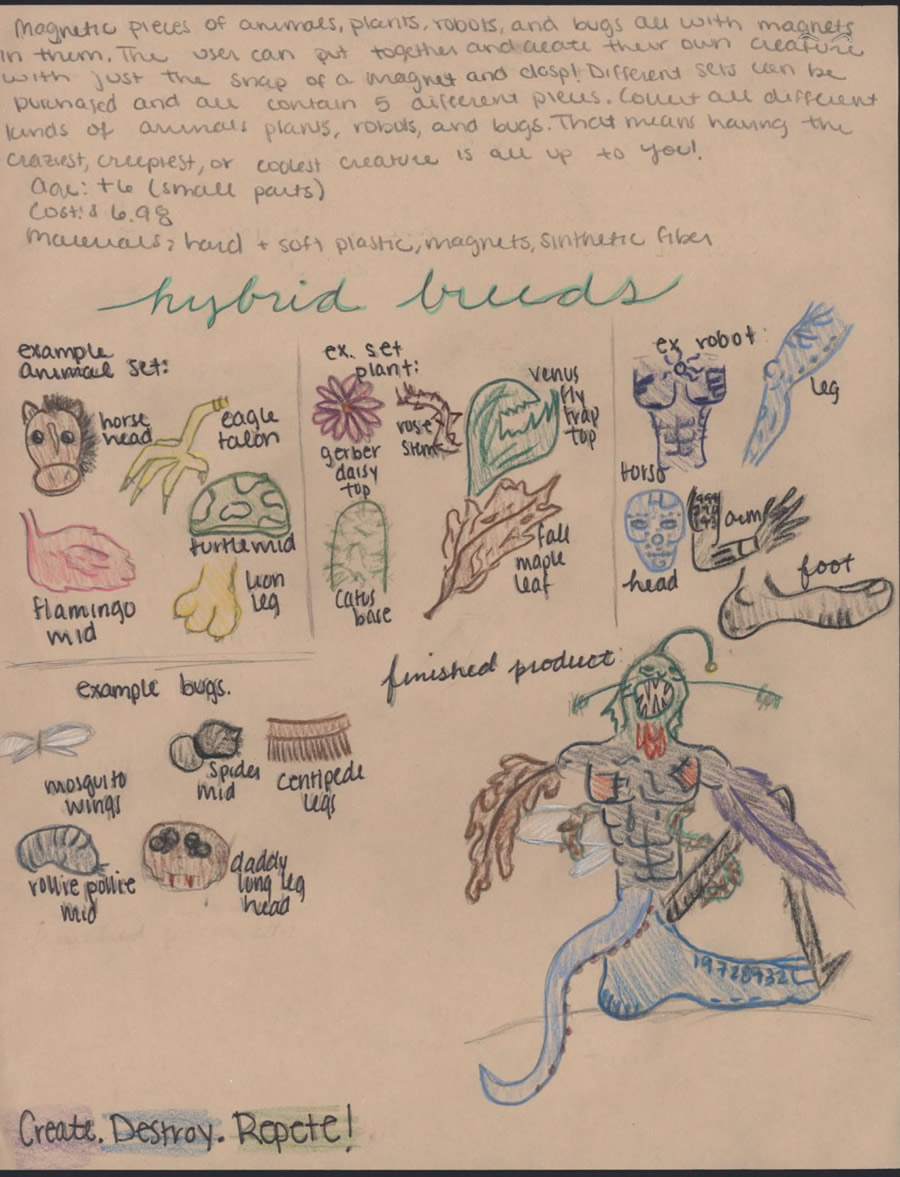 Magnetic pieces of animals, plants, robots, and bugs all with magnets
in them. The user can put together and create their own creature
with just the snap of a magnet and clasp! Different sets can be
purchased and all contain 5 different pieces. Collect all different
kinds of animals plants, robots, and bugs. That means having the
craziest, creepiest, or coolest creature is all up to you!
Age: +6 (small parts)
Cost: $ 6.98
Materials: hard + soft plastic, magnets, sinthetic fiber
hybrid breeds
example
animal set:
horse
head
eagle
talon
turtle mid
flamingo
mid
lion
leg
ex. set
plant:
gerber
daisy
top
rose
stem
venus
fly
trap
top
catus
base
fall
maple
leaf
ex robot:
torso
leg
head
arm
foot
example bugs.
mosquito
wings
spider
mid
centipede
legs
rollie pollie
mid
daddy
long leg
head
finished product
Create. Destroy. Repete!